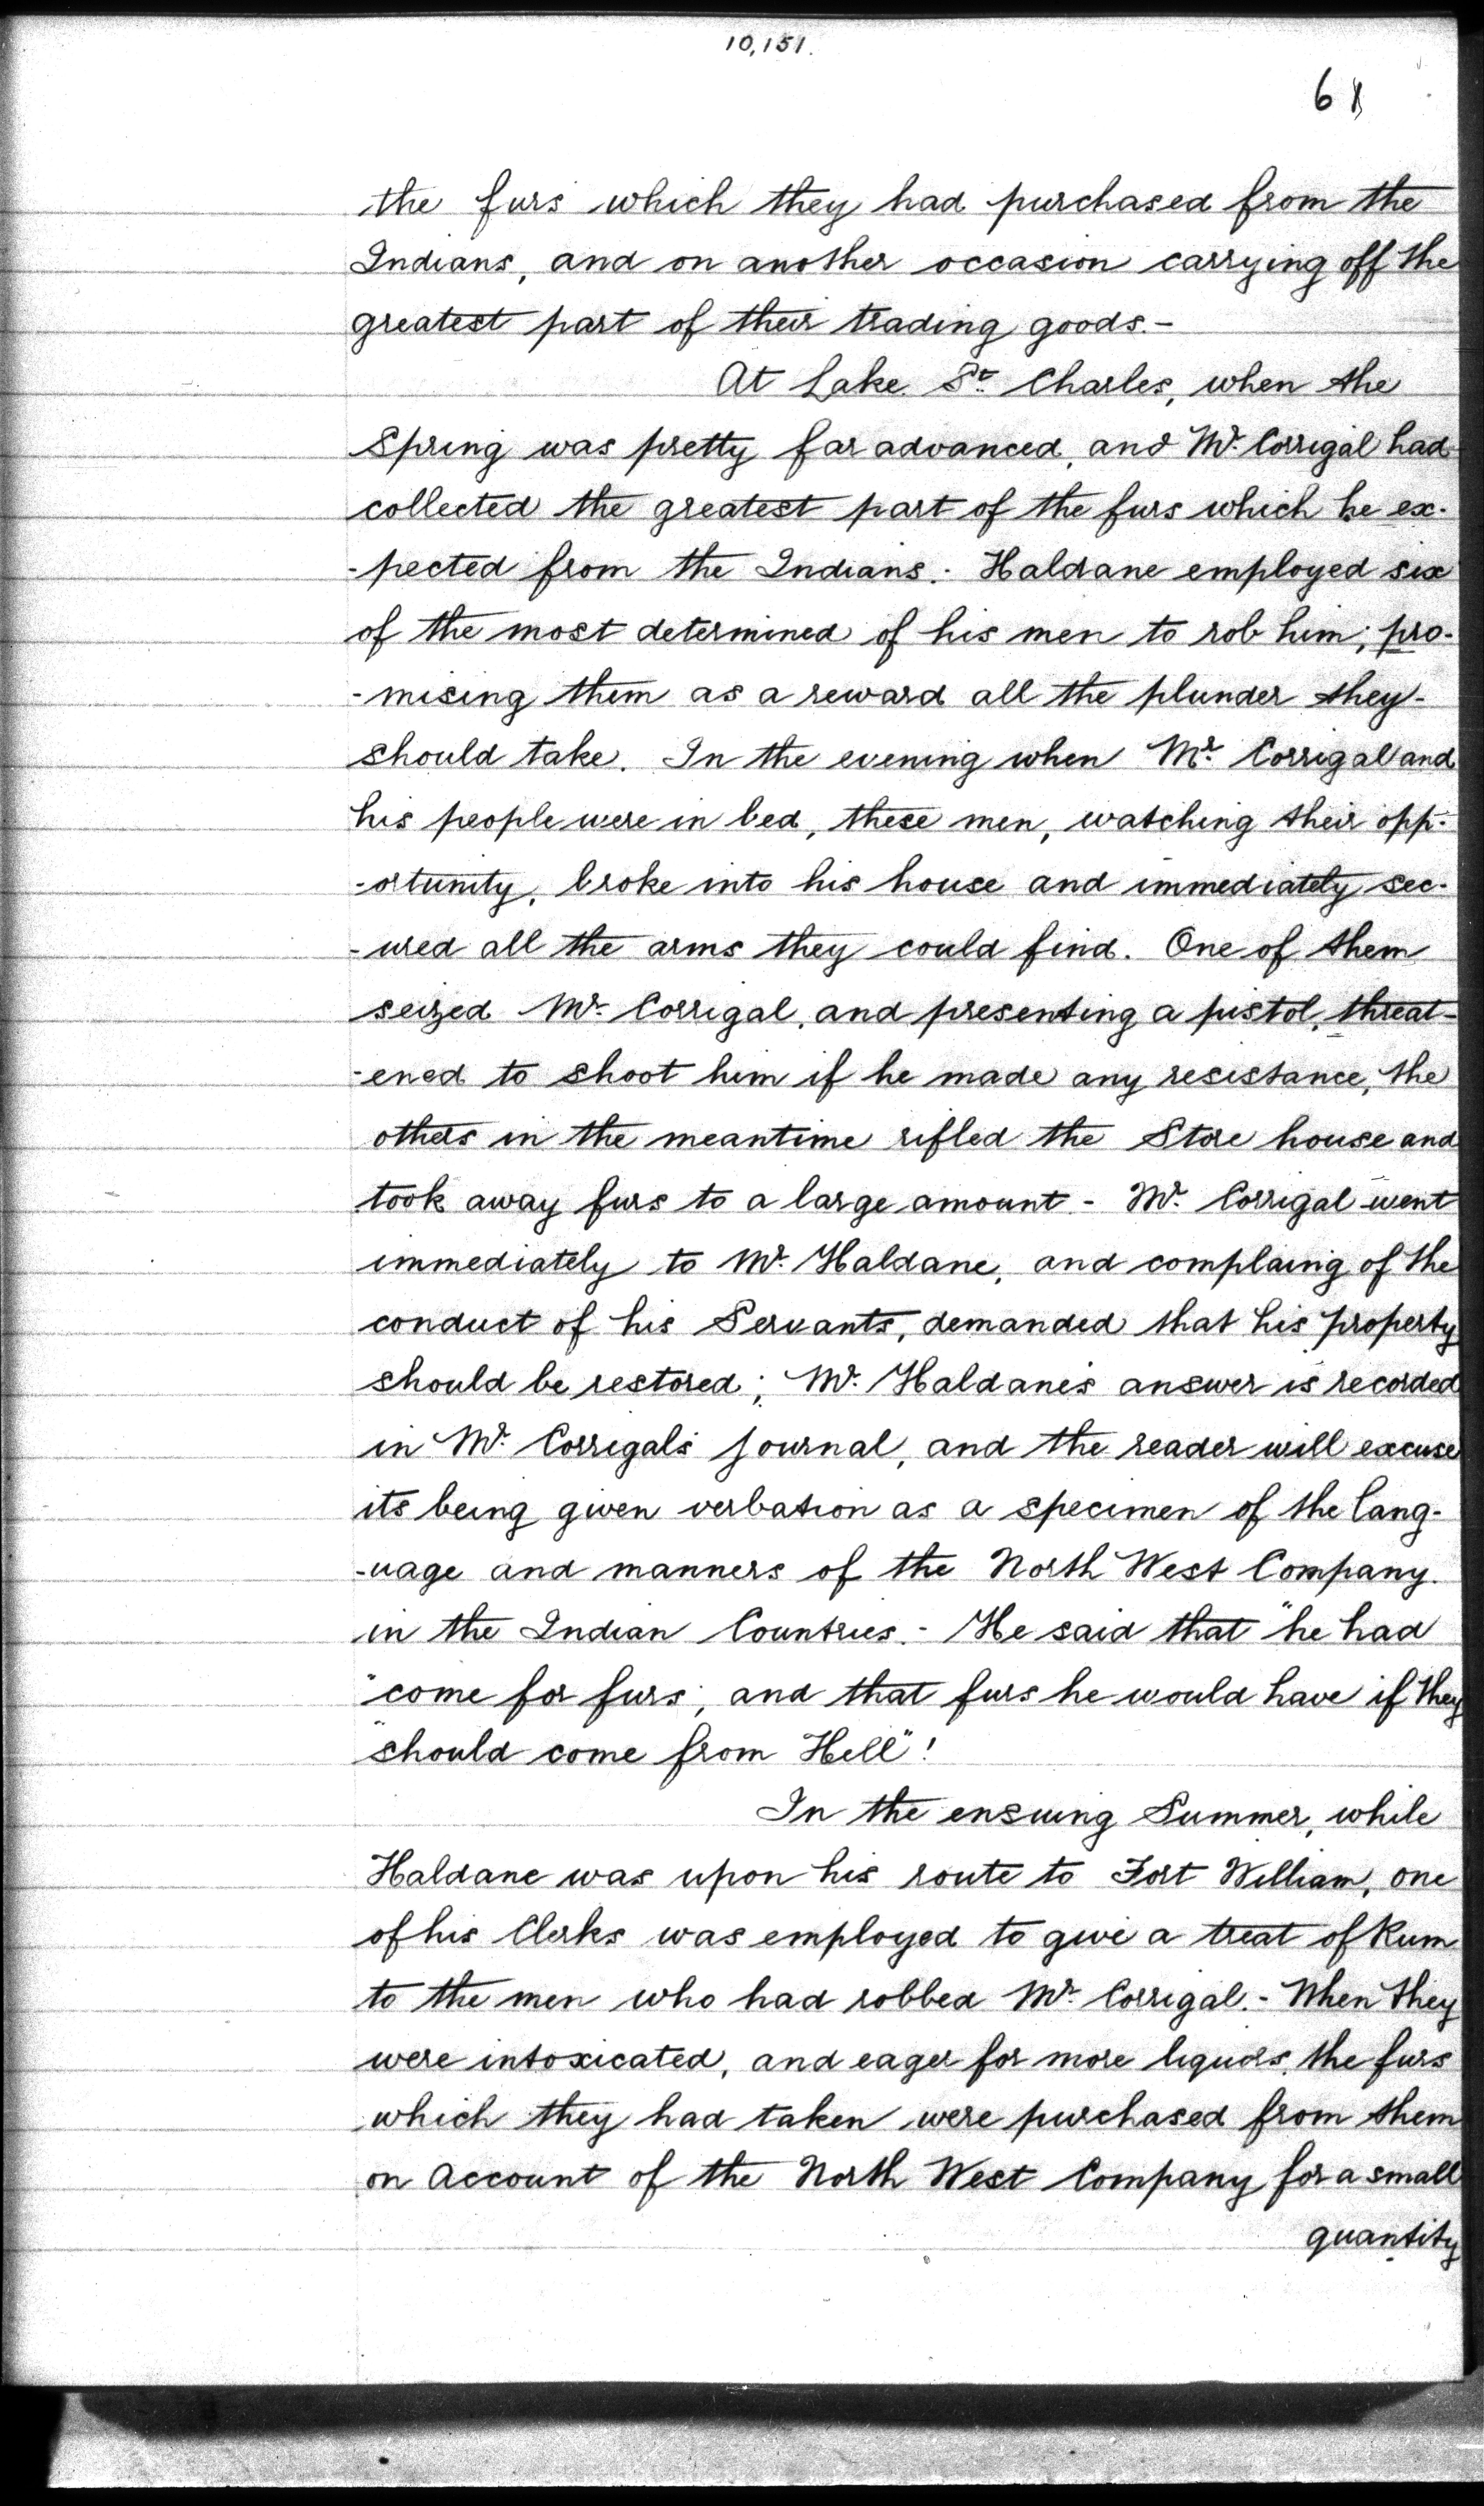 10,151.
61
the furs which they had purchased from the
Indians, and on another occasion carrying off the
greatest part of their trading goods.-
At Lake St. Charles, when the
Spring was pretty far advanced, and Mr. Corrigal had
collected the greatest part of the furs which he ex-
-pected from the Indians.- Haldane employed six
of the most determined of his men to rob him; pro-
-mising them as a reward all the plunder they-
should take. In the evening when Mr. Corrigal and
his people were in bed, these men, watching their opp-
-ortunity, broke into his house and immediately sec-
-ured all the arms they could find. One of them
seized Mr. Corrigal, and presenting a pistol, threat-
-ened to shoot him if he made any resistance, the
others in the meantime rifled the Store house and
took away furs to a large amount - Mr. Corrigal went
immediately to Mr. Haldane, and complaing of the
conduct of his Servants, demanded that his property
should be restored; Mr. Haldane's answer is recorded
in Mr. Corrigal's journal, and the reader will excuse
its being given verbation as a specimen of the lang-
-uage and manners of the North West Company.
in the Indian Countries.- He said that "he had
"come for furs; and that furs he would have if they
"should come from Hell"!
In the ensuing Summer, while
Haldane was upon his route to Fort William, one
of his Clerks was employed to give a treat of Rum
to the men who had robbed Mr. Corrigal.- When they
were intoxicated, and eager for more liquors, the furs
which they had taken were purchased from them
on Account of the North West Company for a small
quantity